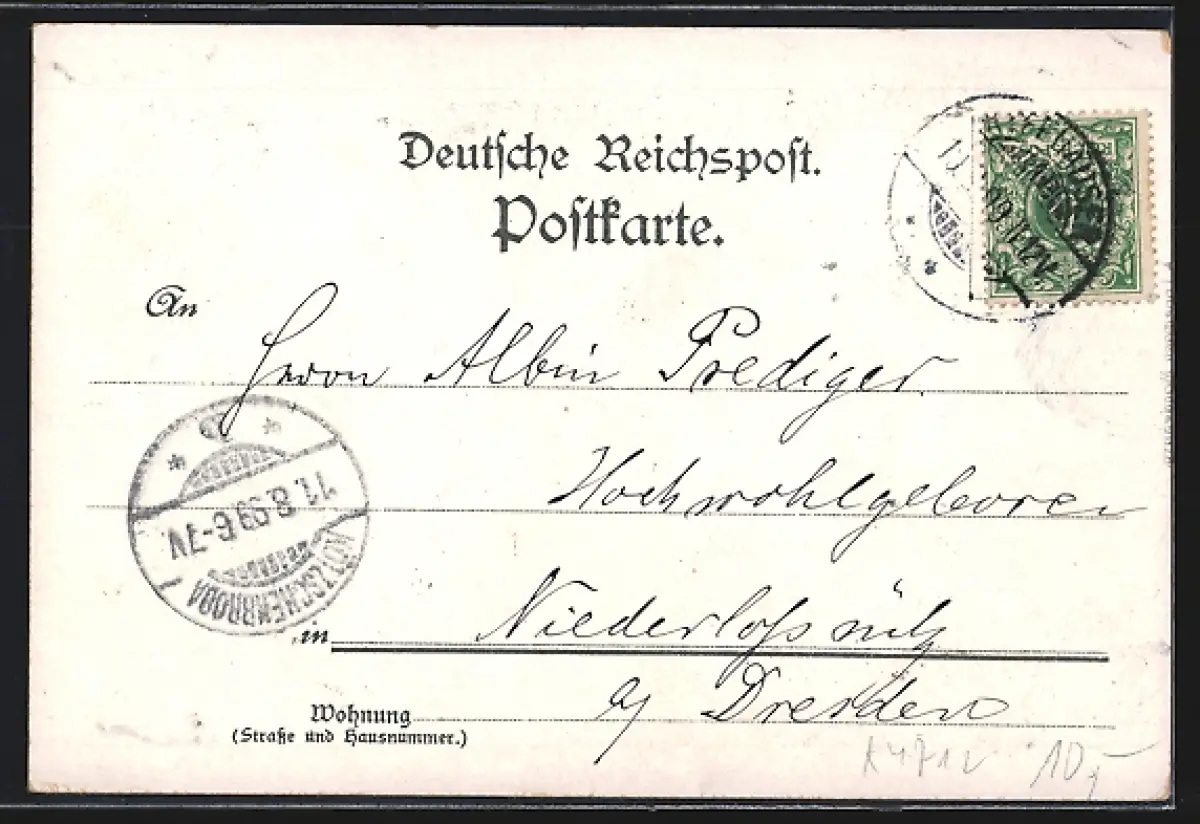 Deutsche Reichspost.
Postkarte.
An
Herrn Albin Prediger
Hochwohlgeboren
in Niederlößnitz
b/ Dresden
Wohnung
(Straße und Hausnummer.)
KÖTZSCHENBRODA
11.8.99 6-7V
10,-